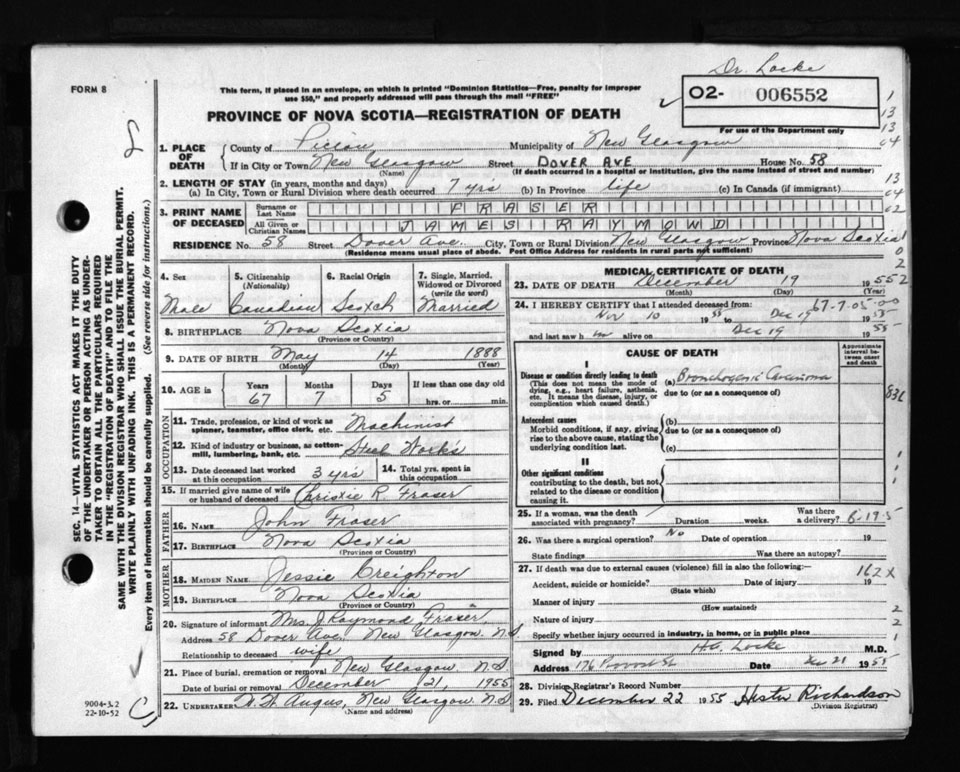 Dr. Locke
FORM 8
This form, if placed in an envelope, on which is printed "Dominion Statistics—Free, penalty for improper
use $50," and properly addressed will pass through the mail "FREE"
O2- 006552
PROVINCE OF NOVA SCOTIA—REGISTRATION OF DEATH
For use of the Department only
1. PLACE OF DEATH County of Pictou Municipality of New Glasgow
If in City or Town New Glasgow Street DOVER AVE House No. 58
(Name) (If death occurred in a hospital or institution, give the name instead of street and number)
2. LENGTH OF STAY (in years, months and days)
(a) In City, Town or Rural Division where death occurred 7 yrs (b) In Province life (c) In Canada (if immigrant)
3. PRINT NAME OF DECEASED Surname or Last Name FRASER
All Given or Christian Names JAMES RAYMOND
RESIDENCE No. 58 Street Dover Ave. City, Town or Rural Division New Glasgow Province Nova Scotia
(Residence means usual place of abode. Post Office Address for residents in rural parts not sufficient)
4. Sex 5. Citizenship (Nationality) 6. Racial Origin 7. Single, Married, Widowed or Divorced (write the word)
Male Canadian Scotch Married
8. BIRTHPLACE Nova Scotia
(Province or Country)
9. DATE OF BIRTH May 14 1888
(Month) (Day) (Year)
10. AGE in Years Months Days If less than one day old
67 7 5 hrs. or min.
OCCUPATION
11. Trade, profession, or kind of work as spinner, teamster, office clerk, etc. Machinist
12. Kind of industry or business, as cotton-mill, lumbering, bank, etc. Steel Works
13. Date deceased last worked at this occupation 3 yrs 14. Total yrs. spent in this occupation
15. If married give name of wife or husband of deceased Christie R. Fraser
FATHER
16. NAME John Fraser
17. BIRTHPLACE Nova Scotia
(Province or Country)
MOTHER
18. MAIDEN NAME Jessie Creighton
19. BIRTHPLACE Nova Scotia
(Province or Country)
20. Signature of informant Mrs. J. Raymond Fraser
Address 58 Dover Ave. New Glasgow N.S.
Relationship to deceased wife
21. Place of burial, cremation or removal New Glasgow N.S
Date of burial or removal December 21, 1955
22. UNDERTAKER Angus, New Glasgow N.S
(Name and address)
MEDICAL CERTIFICATE OF DEATH
23. DATE OF DEATH December 19 1955
(Month) (Day)
24. I HEREBY CERTIFY that I attended deceased from 67-7-05-00
Nov 10 1955 to Dec 19 1955
and last saw h im alive on Dec 19 1955
CAUSE OF DEATH
Approximate interval between onset and death
I
Disease or condition directly leading to death
(This does not mean the mode of dying, e.g., heart failure, asthenia, etc. It means the disease, injury, or complication which caused death.)
(a) Bronchogenic Carcinoma
due to (or as a consequence of)
Antecedent causes
Morbid conditions, if any, giving rise to the above cause, stating the underlying condition last.
(b)
due to (or as a consequence of)
(c)
II
Other significant conditions
contributing to the death, but not related to the disease or condition causing it.
25. If a woman, was the death associated with pregnancy? Duration weeks. Was there a delivery?
26. Was there a surgical operation? No Date of operation 19
State findings Was there an autopsy?
27. If death was due to external causes (violence) fill in also the following:— 162X
Accident, suicide or homicide? Date of injury 19
(State which)
Manner of injury
(How sustained)
Nature of injury
Specify whether injury occurred in industry, in home, or in public place
Signed by H.G. Locke M.D.
Address 176 Date Dec 21 1955
28. Division Registrar's Record Number
29. Filed December 22 1955 Hester Richardson
(Division Registrar)
SEC. 14—VITAL STATISTICS ACT MAKES IT THE DUTY
OF THE UNDERTAKER OR PERSON ACTING AS UNDER-
TAKER TO OBTAIN ALL THE PARTICULARS REQUIRED
IN THE "REGISTRATION OF DEATH" AND TO FILE THE
SAME WITH THE DIVISION REGISTRAR WHO SHALL ISSUE THE BURIAL PERMIT.
WRITE PLAINLY WITH UNFADING INK. THIS IS A PERMANENT RECORD.
Every item of information should be carefully supplied. (See reverse side for instructions.)
9004-3.2
22-10-52